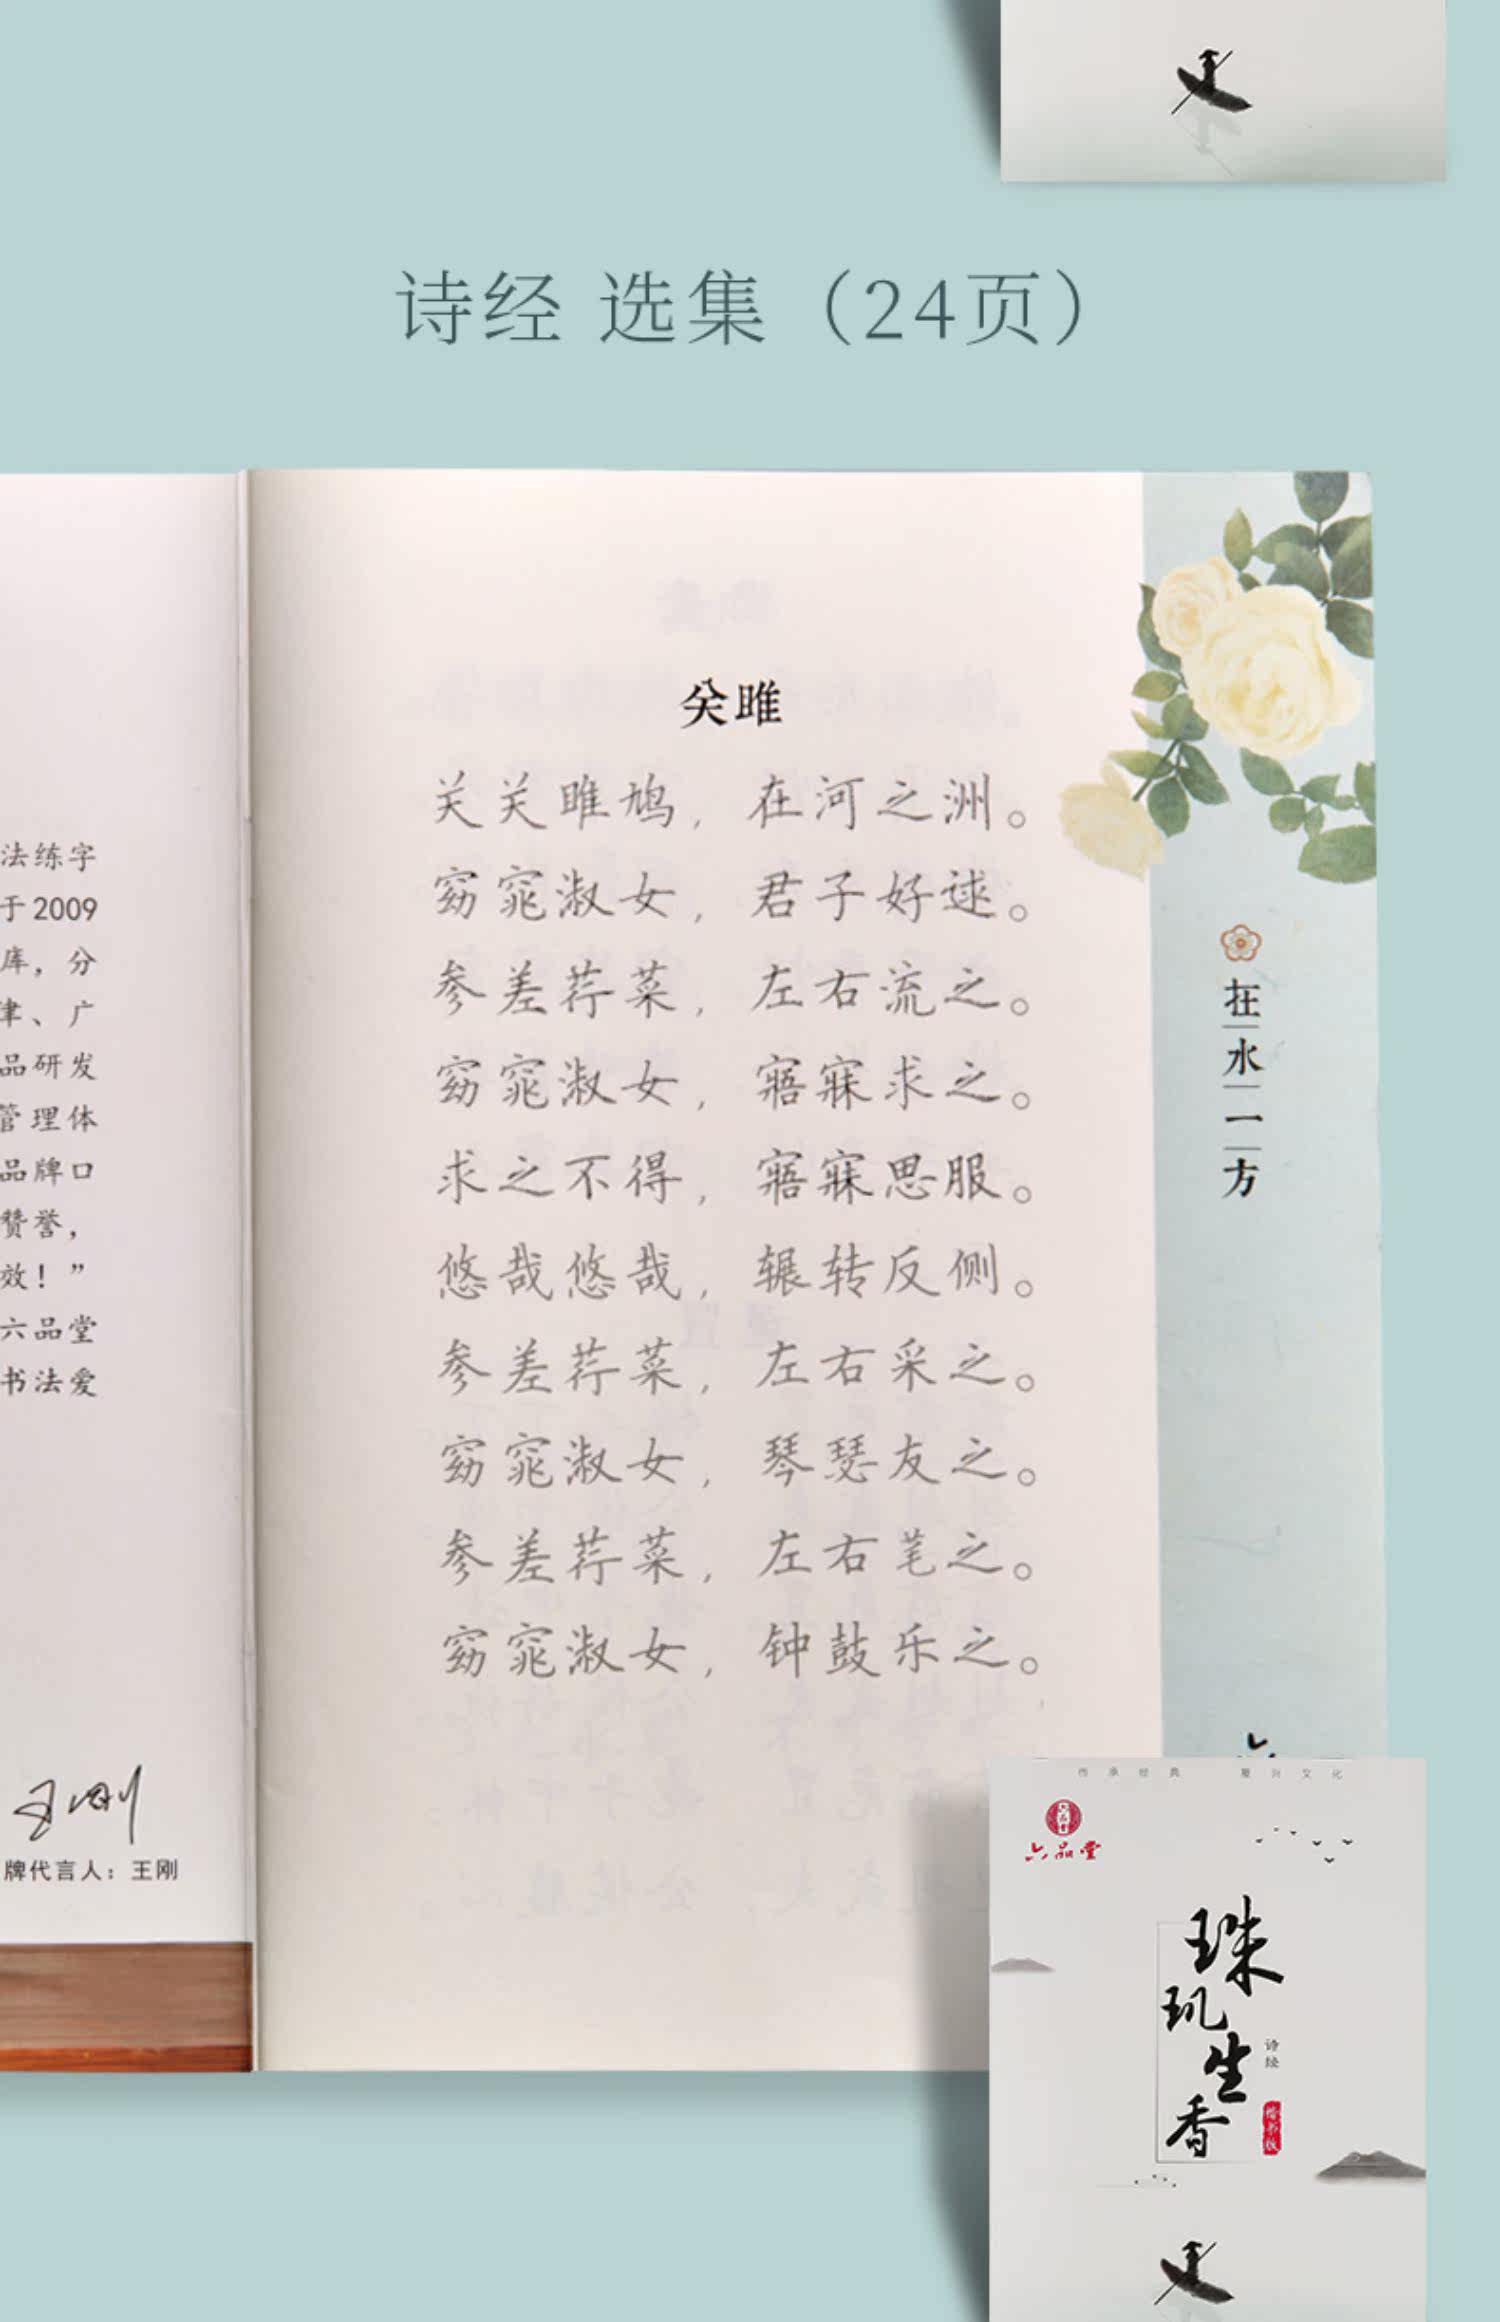 诗经 选集（24页）
法练字
于2009
库，分
津、广
品研发
管理体
品牌口
赞誉，
效！”
六品堂
书法爱
王刚
牌代言人：王刚
关雎
关关雎鸠，在河之洲。
窈窕淑女，君子好逑。
参差荇菜，左右流之。
窈窕淑女，寤寐求之。
求之不得，寤寐思服。
悠哉悠哉，辗转反侧。
参差荇菜，左右采之。
窈窕淑女，琴瑟友之。
参差荇菜，左右芼之。
窈窕淑女，钟鼓乐之。
在水一方
六
传承经典 复兴文化
六品堂
六品堂
珠玑生香
诗经
楷书版